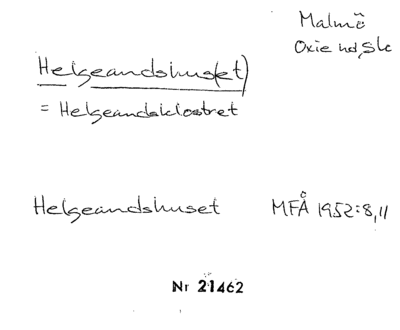 Malmö
Oxie hd, Sk
Helgeandshuset)
= Helgeandsklostret
Helgeandshuset MFÅ 1952:8, 11
Nr 21462